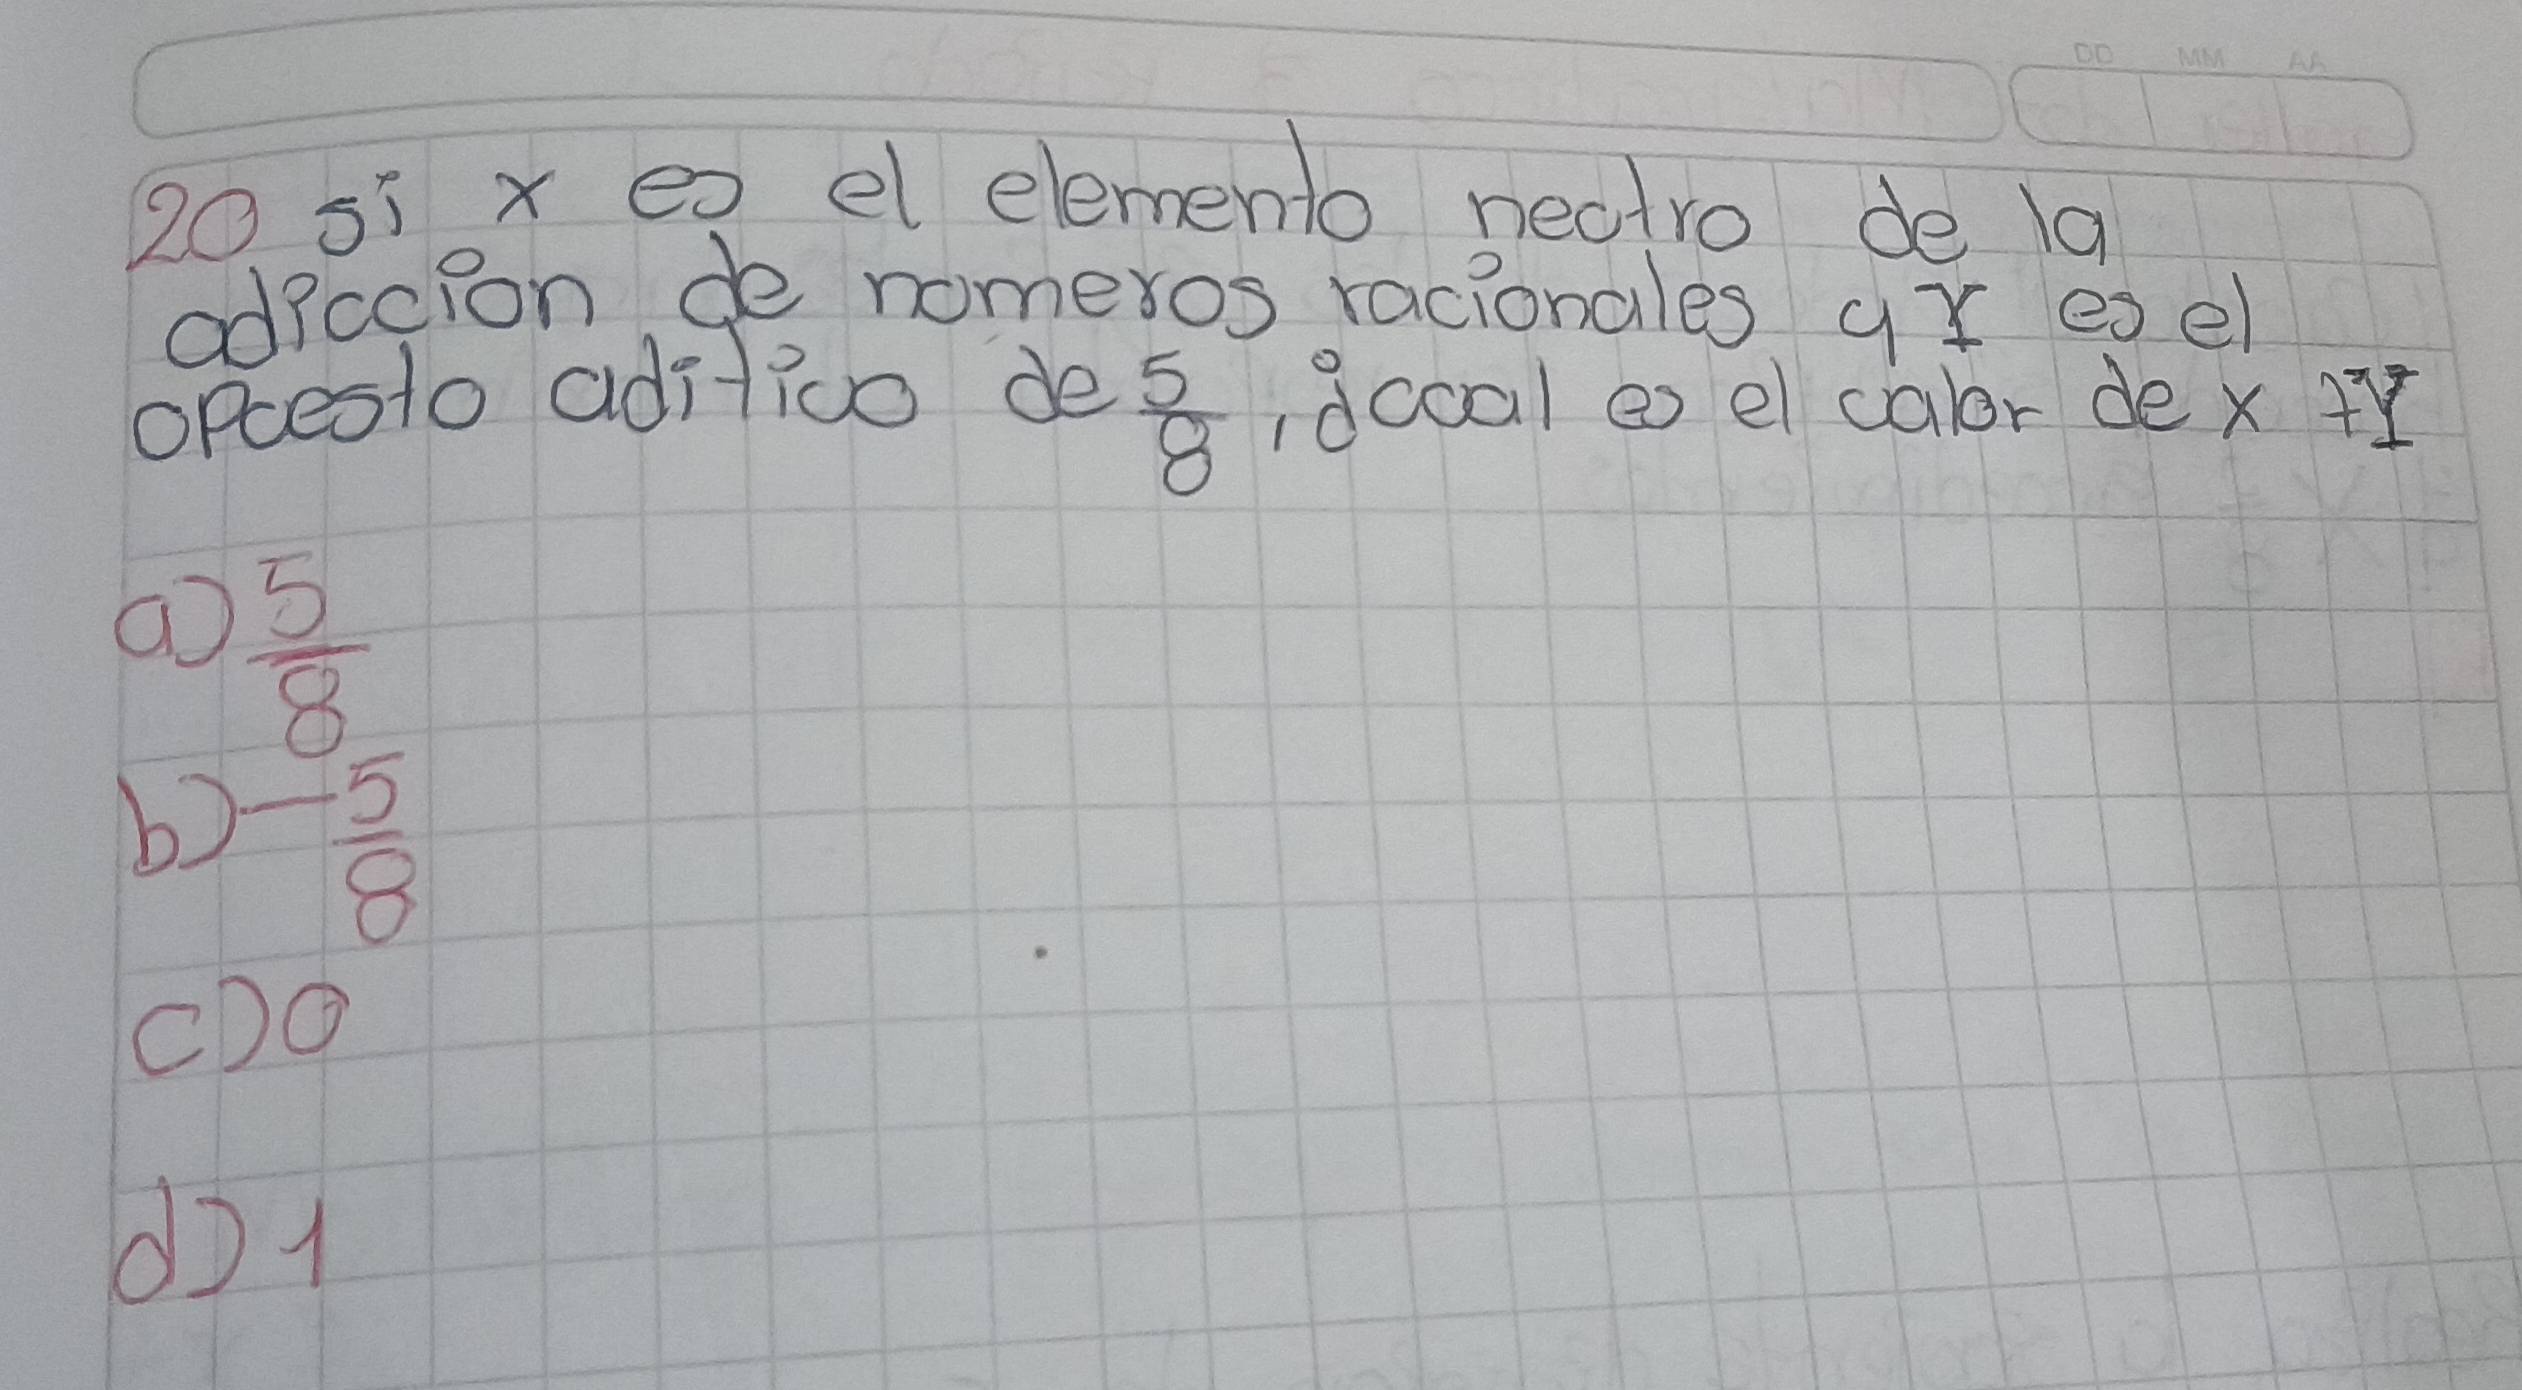 DD MM AA
20 si x es el elemento neutro de la
adiccion de numeros racionales y Y es el
opuesto aditivo de 5/8, ¿cual es el valor de x + Y
a) 5/8
b) - 5/8
c) 0
d) 1